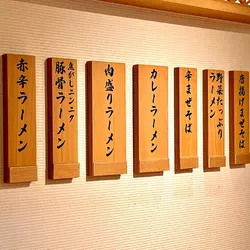 唐揚げまぜそば
野菜たっぷり
ラーメン
辛まぜそば
カレーラーメン
肉盛りラーメン
焦がしニンニク
豚骨ラーメン
赤辛ラーメン